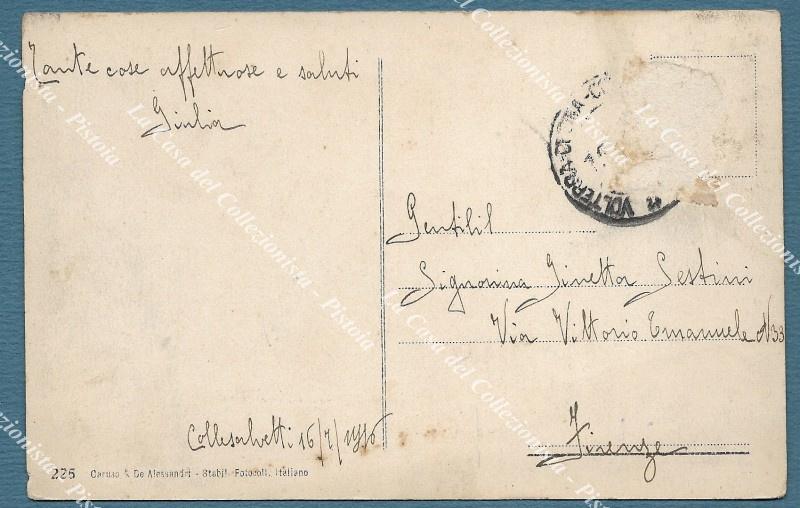 Tante cose affettuose e saluti
Giulia
Collesalvetti 16/7/1916
VOLTERRA-C
Gentilil
Signorina Ginetta Sestini
Via Vittorio Emanuele N 33
Firenze
226 Caruso & De Alessandri - Stabil. Fotocoll. Italiano
La Casa del Collezionista - Pistoia